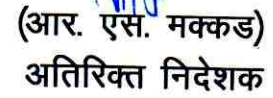 (आर. एस. मक्कड)
अतिरिक्त निदेशक